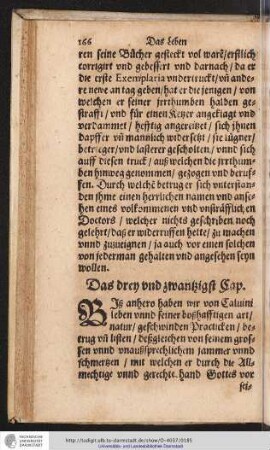 166 Das Leben
ren seine Bücher gesteckt vol warē/erstlich
corrigirt vnd gebessert vnd darnach/da er
die erste Exemplaria vndertruckt/vñ ande-
re newe an tag geben/hat er die jenigen/von
welchen er seiner jrrthumben halben ge-
strafft/vnd für einen Ketzer angeklagt vnd
verdammet/hefftig angereitzet/sich jhnen
dapffer vñ mannlich widersetzt/sie lügner/
betrieger/vnd lästerer gescholten/vnnd sich
auff diesen truck/auß welchen die jrrthum-
ben hinweg genommen/gezogen vnd beruf-
fen. Durch welchē betrug er sich vnterstan-
den jhme einen herrlichen namen vnd anse-
hen eines volkommenen vnd vnsträfflichen
Doctors/welcher nichts geschriben noch
gelehrt/daß er widerruffen hette/zu machen
vnnd zuzueignen/ja auch vor einen solchen
von jederman gehalten vnd angesehen seyn
wollen.
Das drey vnd zwantzigst Cap.
Biß anhero haben wir von Caluini
leben vnnd seiner boßhafftigen art/
natur/geschwinden Practicken/be-
trug vñ listen/deßgleichen von seinem gros-
sen vnnd vnaußsprechlichem jammer vnnd
schmertzen/mit welchen er durch die All-
mechtige vnnd gerechte hand Gottes vor
sei-
http://tudigit.ulb.tu-darmstadt.de/show/O-4037/0185
Universitäts- und Landesbibliothek Darmstadt